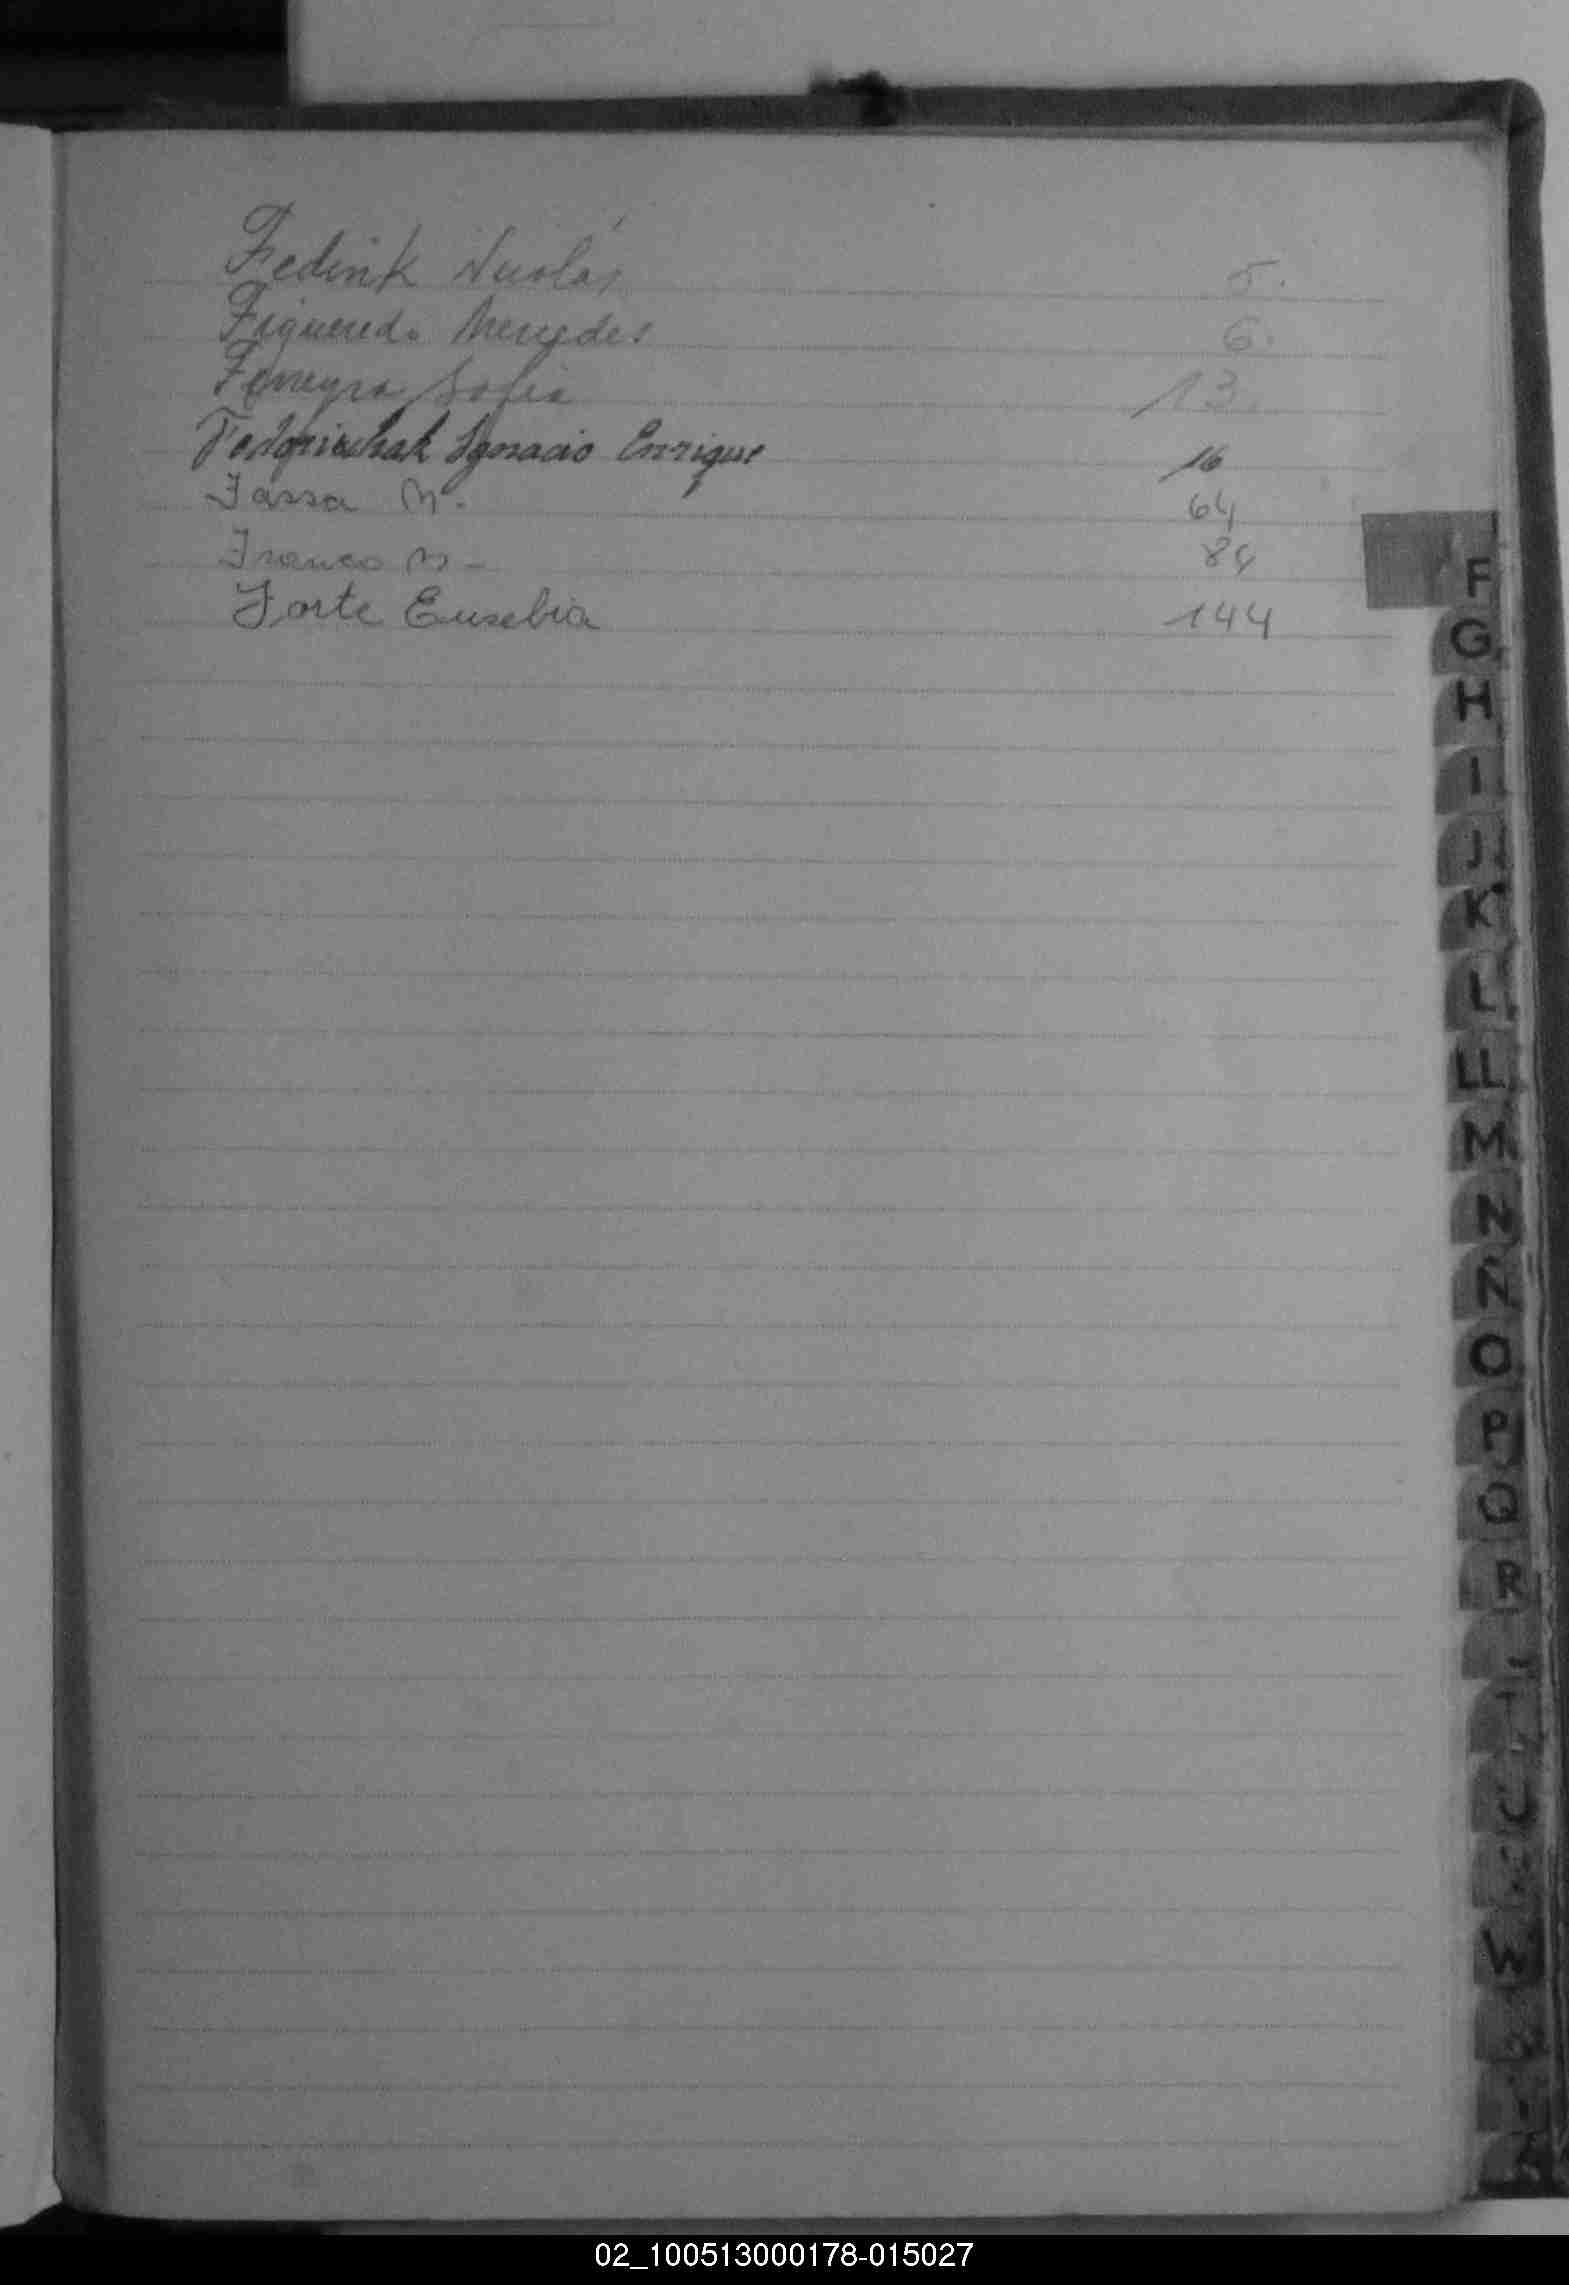 Fedink Nicolás 5.
Figueredo Mercedes 6.
Ferreyra Sofia 13.
Ignacio Enrique 16
Fassa N. 64
Franco N- 84
Forte Eusebia 144
F
G
H
I
J
K
L
LL
M
N
Ñ
O
P
Q
R
T
U
W
Z
02_100513000178-015027